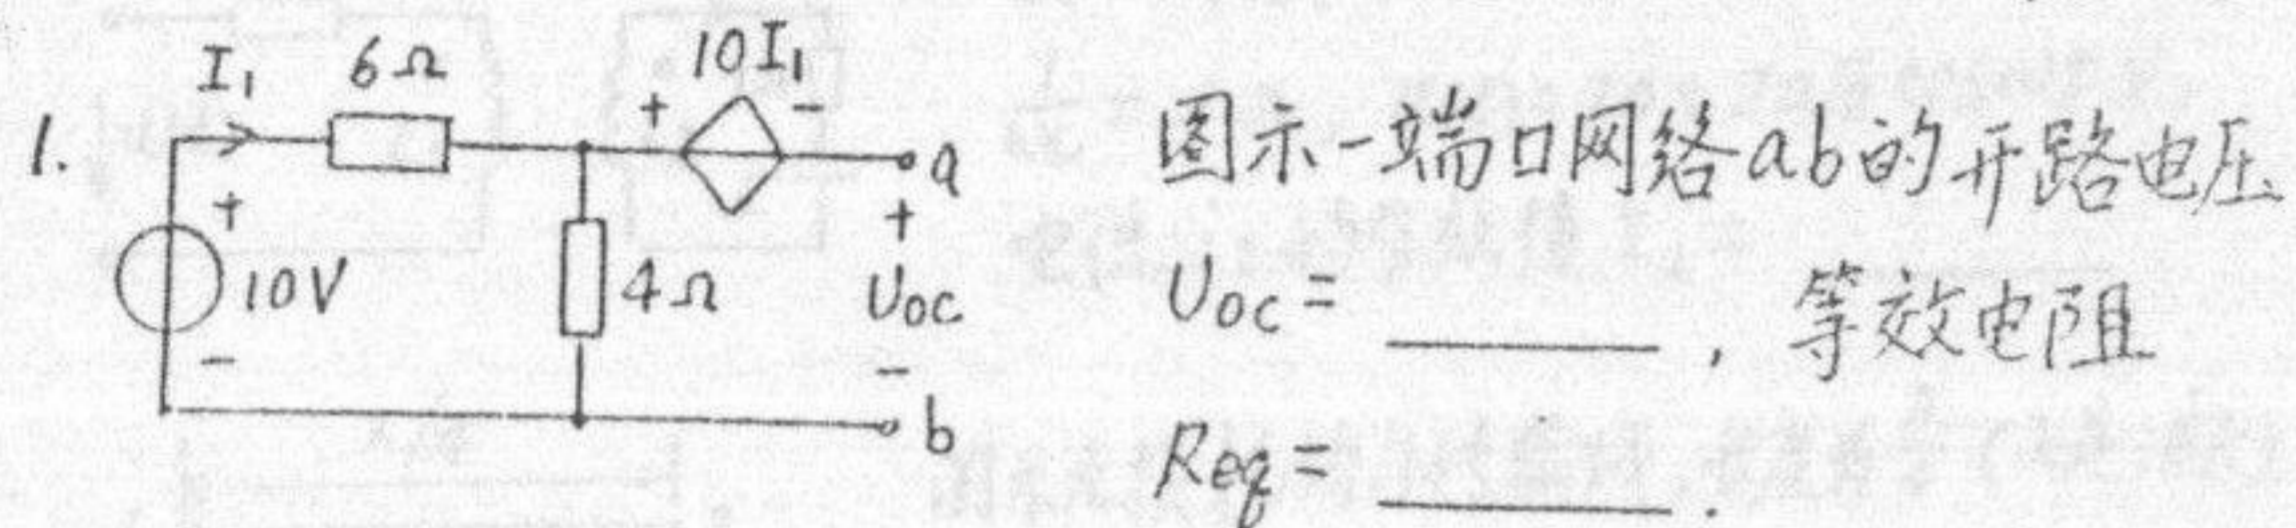 1.
I₁ 6Ω 10I₁
+ -
a
+ +
10V 4Ω Uoc
- -
b
图示一端口网络ab的开路电压
Uoc= ______ , 等效电阻
Req= ______ .